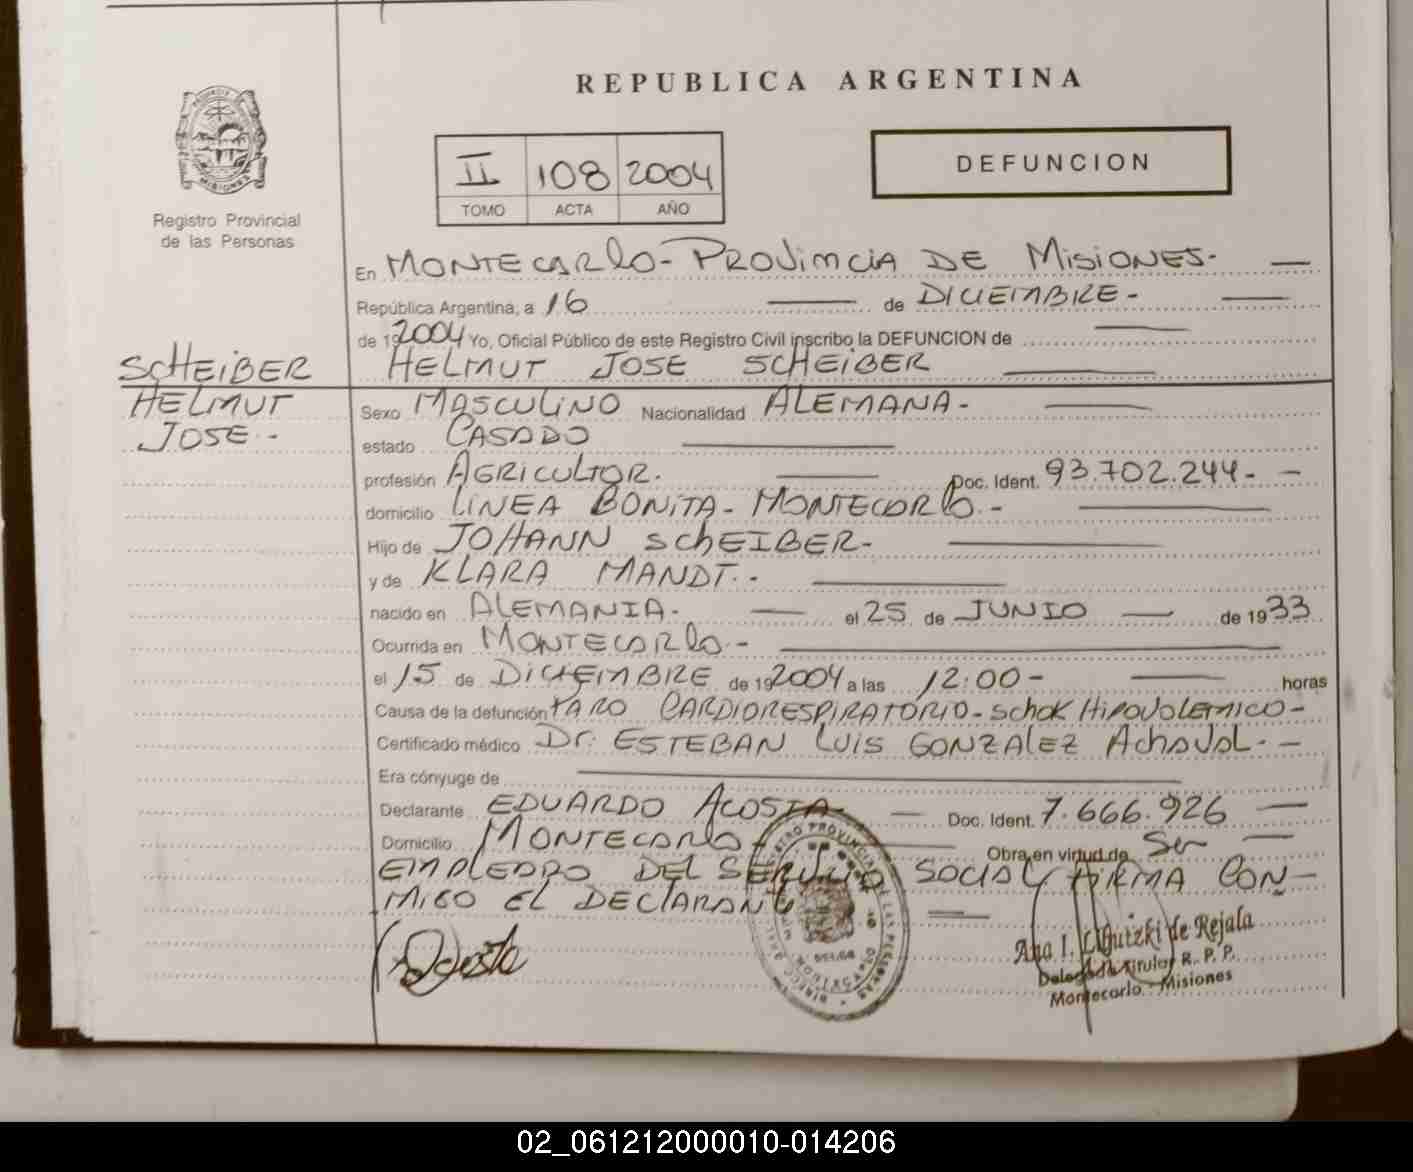 REPUBLICA ARGENTINA
II 108 2004
TOMO ACTA AÑO
DEFUNCION
PROVINCIA DE
MISIONES
Registro Provincial
de las Personas
En MONTECARLO - PROVINCIA DE MISIONES. —
República Argentina, a 16 — de DICIEMBRE - —
de 19 2004 Yo, Oficial Público de este Registro Civil inscribo la DEFUNCION de —
HELMUT JOSE SCHEIBER —
SCHEIBER
HELMUT
JOSE -
Sexo MASCULINO Nacionalidad ALEMANA - —
estado CASADO —
profesión AGRICULTOR. — Doc. Ident. 93.702.244 - —
domicilio LINEA BONITA - MONTECARLO - —
Hijo de JOHANN SCHEIBER - —
y de KLARA MANDT. - —
nacido en ALEMANIA - — el 25 de JUNIO — de 19 33
Ocurrida en MONTECARLO - —
el 15 de DICIEMBRE de 19 2004 a las 12:00 - — horas
Causa de la defunción PARO CARDIORESPIRATORIO - SCHOK HIPOVOLEMICO -
Certificado médico Dr. ESTEBAN LUIS GONZALEZ ACHAVAL - —
Era cónyuge de —
Declarante EDUARDO ACOSTA - — Doc. Ident. 7.666.926 —
Domicilio MONTECARLO - — Obra en virtud de Ser —
EMPLEADO DEL SERVICIO SOCIAL FIRMA CON-
MIGO EL DECLARANTE —
Ana I. de Rejala
Delegada Titular R. P. P.
Montecarlo - Misiones
02_061212000010-014206